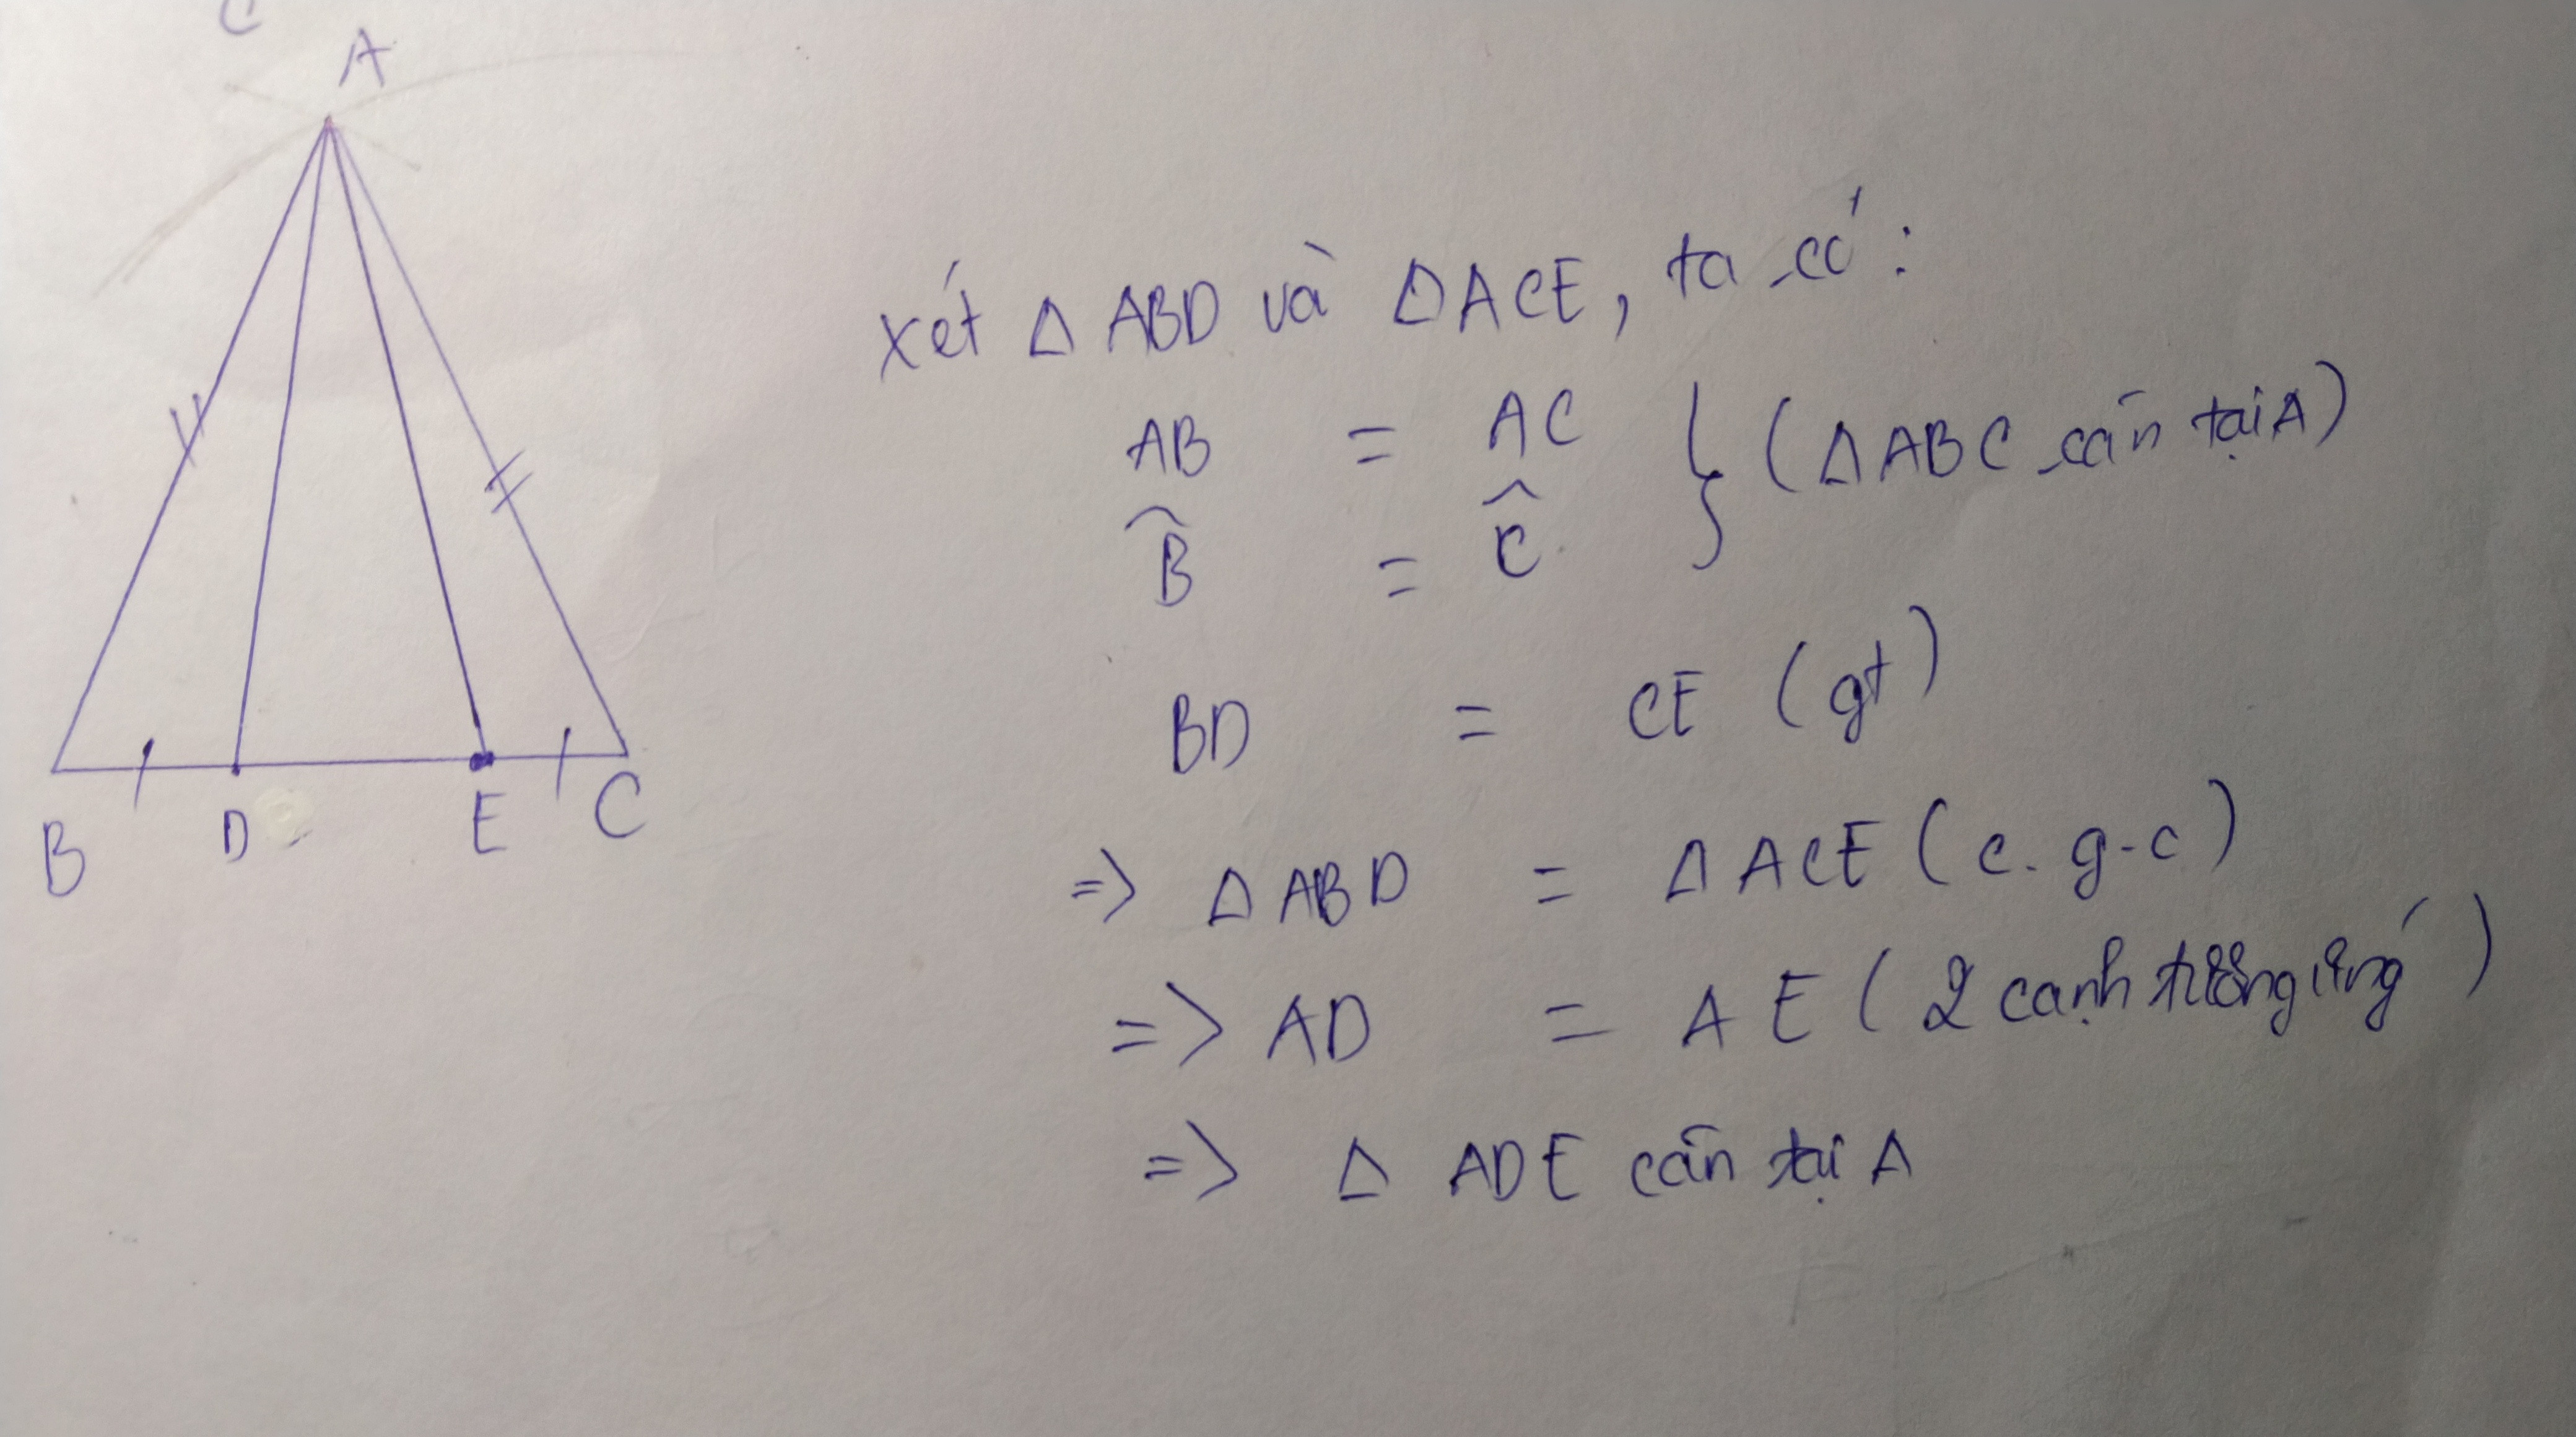 A
B D E C
xét Δ ABD và ΔACE, ta có:
AB = AC } (ΔABC cân tại A)
B̂ = Ĉ
BD = CE (gt)
=> Δ ABD = Δ ACE (c.g.c)
=> AD = AE (2 cạnh tương ứng)
=> Δ ADE cân tại A